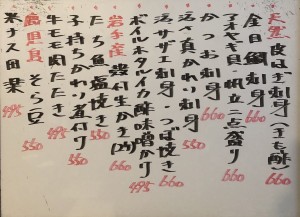 天然 皮はぎ刺身(キモ酢)
金目鯛刺身 660
アオヤギ貝・帆立二点盛り
かつお刺身 550
活〆真かわり刺身 660
活サザエ刺身・つぼ焼き
ボイルホタルイカ酢味噌かけ 495
岩手産 殻付生かき(2ケ) 660
たち魚塩焼き 660
子持ちかれい煮付け 550
牛モモ肉たたき 495
鹿児島 そら豆 550
米ナス田楽 495